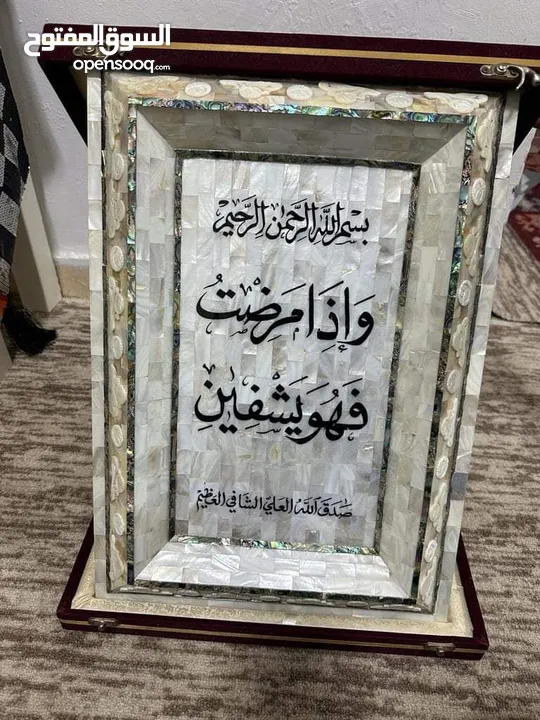 السوق المفتوح
opensooq.com
بسم الله الرحمن الرحيم
وَإِذَا مَرِضْتُ
فَهُوَ يَشْفِينِ
صَدَقَ اللهُ العلي الشافي العظيم